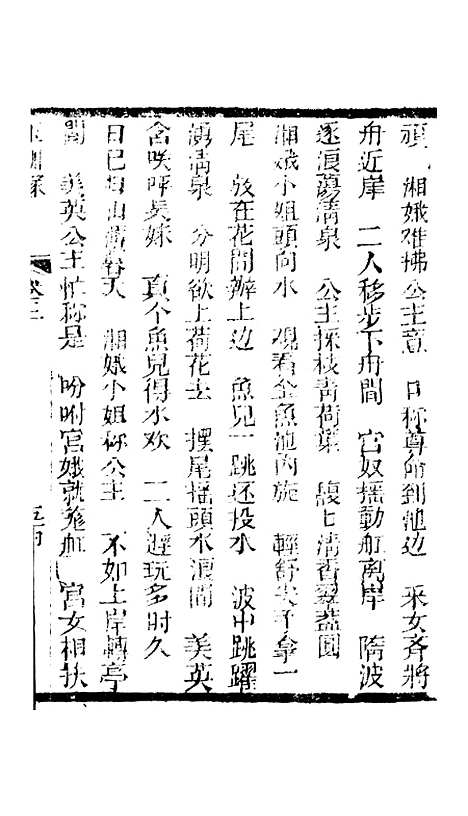 湘娥难拂公主意 口称尊命到池边 采女斉將
舟近岸 二人移步下舟間 宫奴摇動舡离岸 隋波
逐浪蕩清泉 公主採枝青荷葉 馥七清香翠蓋圓
湘娥小姐頭向水 观看金魚池内旋 輕舒夫手拿一
尾 放在花間辦上边 魚兒一跳还投水 波中跳躍
湧清泉 分明欲上荷花去 擺尾摇頭水浪間 美英
含咲呼吴妹 真个魚兒得水欢 二人遊玩多时久
日已 山 天 湘娥小姐称公主 不如上岸轉亭
間 美英公主忙称是 吩咐宫娥就 舡 宫女相扶